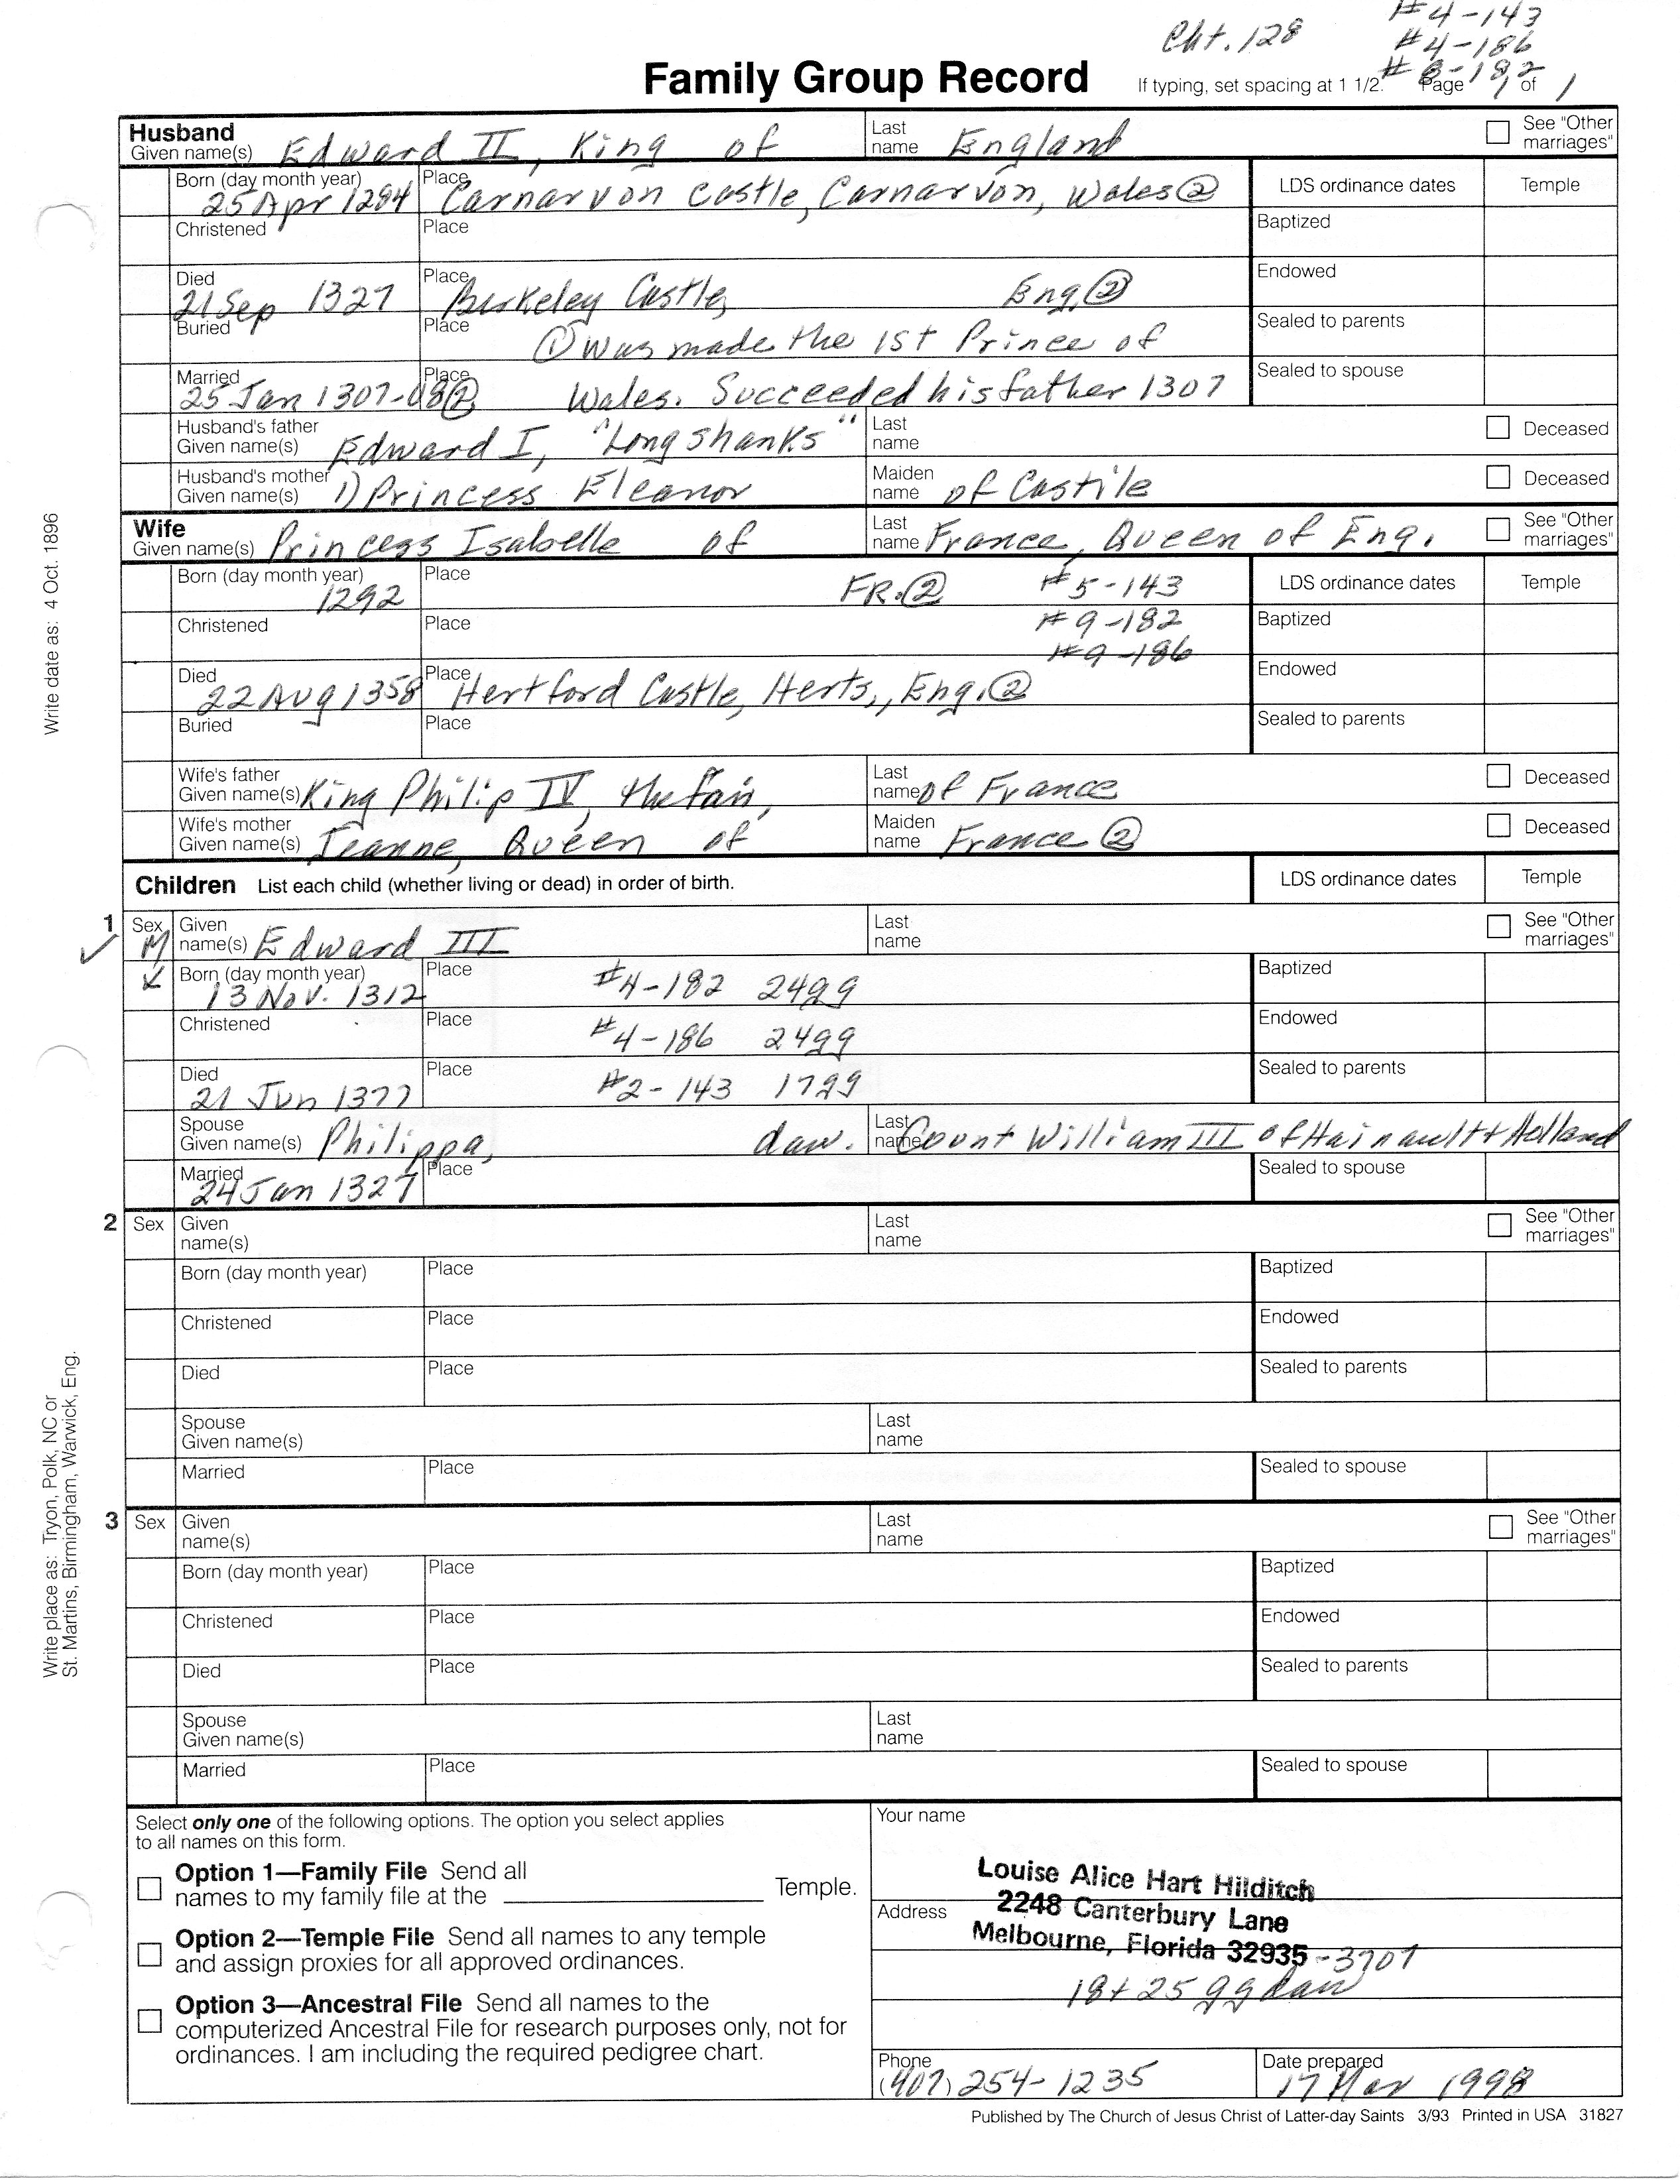 Cht. 128 #4-143
#4-186
#8-182
Family Group Record If typing, set spacing at 1 1/2. Page 1 of 1
Husband
Given name(s) Edward II, King of Last name England See "Other marriages"
Born (day month year) 25 Apr 1284 Place Carnarvon Castle, Carnarvon, Wales ② LDS ordinance dates Temple
Christened Place Baptized
Died 21 Sep 1327 Place Berkeley Castle, Eng. ② Endowed
Buried Place ① Was made the 1st Prince of Sealed to parents
Married 25 Jan 1307-08 ② Place Wales. Succeeded his father 1307 Sealed to spouse
Husband's father Given name(s) Edward I, "Longshanks" Last name Deceased
Husband's mother Given name(s) 1) Princess Eleanor Maiden name of Castile Deceased
Wife
Given name(s) Princess Isabelle of Last name France, Queen of Eng. See "Other marriages"
Born (day month year) 1292 Place FR. ② #5-143 LDS ordinance dates Temple
Christened Place #9-182 Baptized
#9-186
Died 22 Aug 1358 Place Hertford Castle, Herts,, Eng. ② Endowed
Buried Place Sealed to parents
Wife's father Given name(s) King Philip IV, the Fair, Last name of France Deceased
Wife's mother Given name(s) Jeanne, Queen of Maiden name France ② Deceased
Children List each child (whether living or dead) in order of birth. LDS ordinance dates Temple
1 Sex M Given name(s) Edward III Last name See "Other marriages"
Born (day month year) 13 Nov. 1312 Place #4-182 24gg Baptized
Christened Place #4-186 24gg Endowed
Died 21 Jun 1377 Place #2-143 17gg Sealed to parents
Spouse Given name(s) Philippa, daw. Last name Count William III of Hainault + Holland
Married 24 Jan 1327 Place Sealed to spouse
2 Sex Given name(s) Last name See "Other marriages"
Born (day month year) Place Baptized
Christened Place Endowed
Died Place Sealed to parents
Spouse Given name(s) Last name
Married Place Sealed to spouse
3 Sex Given name(s) Last name See "Other marriages"
Born (day month year) Place Baptized
Christened Place Endowed
Died Place Sealed to parents
Spouse Given name(s) Last name
Married Place Sealed to spouse
Write date as: 4 Oct. 1896
Write place as: Tryon, Polk, NC or
St. Martins, Birmingham, Warwick, Eng.
Select only one of the following options. The option you select applies
to all names on this form.
Option 1—Family File Send all
names to my family file at the Temple.
Option 2—Temple File Send all names to any temple
and assign proxies for all approved ordinances.
Option 3—Ancestral File Send all names to the
computerized Ancestral File for research purposes only, not for
ordinances. I am including the required pedigree chart.
Your name
Louise Alice Hart Hilditch
Address 2248 Canterbury Lane
Melbourne, Florida 32935-3707
18+25 gg daw
Phone (407) 254-1235 Date prepared 17 Mar 1998
Published by The Church of Jesus Christ of Latter-day Saints 3/93 Printed in USA 31827